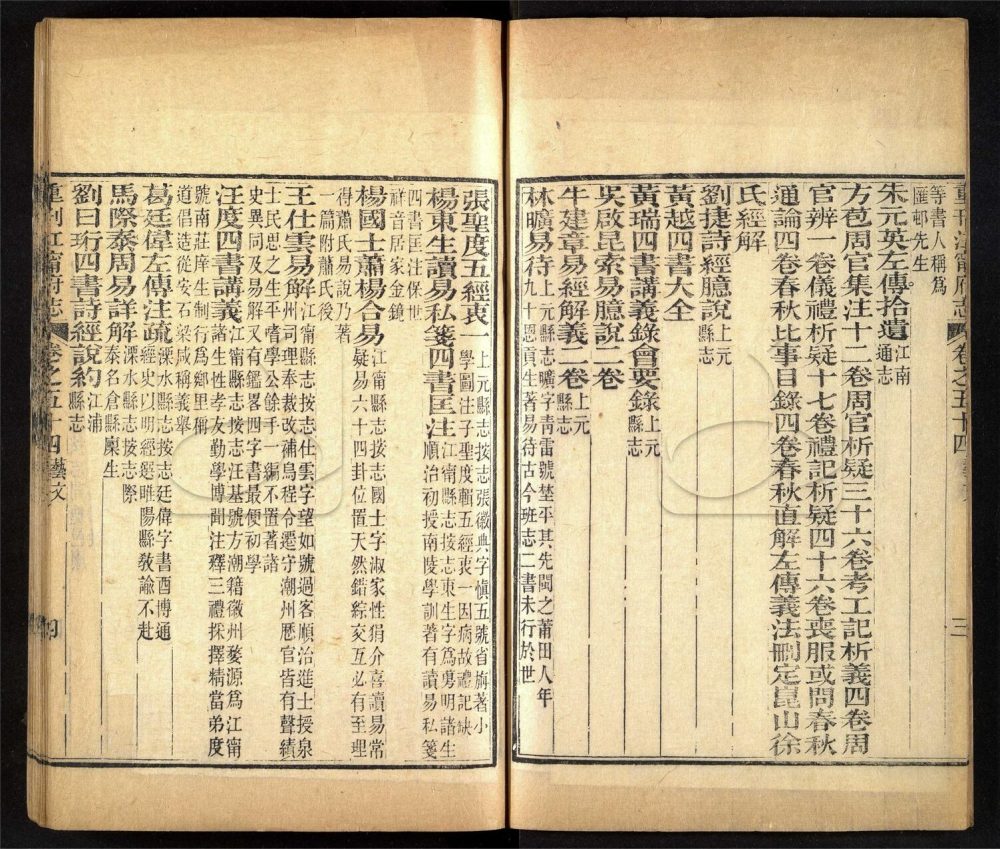 重刊江甯府志 卷之五十四 藝文 三
等書人稱爲
匯邨先生
朱元英左傳拾遺江南
通志
方苞周官集注十二卷周官析疑三十六卷考工記析義四卷周
官辨一卷儀禮析疑十七卷禮記析疑四十六卷喪服或問春秋
通論四卷春秋比事目錄四卷春秋直解左傳義法刪定崑山徐
氏經解
劉捷詩經臆說上元
縣志
黃越四書大全
黃瑞四書講義錄會要錄上元
縣志
吳啟昆索易臆說二卷
牛建章易經解義二卷上元
縣志
林曠易待上元縣志曠字青雷號埜平其先閩之莆田人年
九十恩貢生著易待古今班志二書未行於世
張聖度五經衷一上元縣志按志張徽典字愼五號省旃著小
學圖注子聖度輯五經衷一因病故禮記缺
楊東生讀易私箋四書匡注江甯縣志按志東生字爲男明諸生
順治初授南陵學訓著有讀易私箋
四書匡注保世
祥音居家金鏡
楊國士蕭楊合易江甯縣志按志國士字淑家性狷介喜讀易常
疑易六十四卦位置天然錯綜交互必有至理
得蕭氏易說乃著
一篇附蕭氏後
王仕雲易解江甯縣志按志仕雲字望如號過客順治進士授泉
州司理奉裁改補烏程令遷守潮州歷官皆有聲績
士民思之生平嗜學公餘手一編不置著諸
史異同及易解又有鑑畧四字書最便初學
汪度四書講義江甯縣志按志汪基號方潮籍徽州婺源爲江甯
諸生性孝友勤學博聞注釋三禮採擇精當弟度
號南莊庠生制行爲鄉里稱
道倡造從安石梁咸稱義舉
葛廷偉左傳注疏溧水縣志按志廷偉字書酉博通
經史以明經選睢陽縣教諭不赴
馬際泰周易詳解溧水縣志按志際
泰名倉縣廩生
劉曰珩四書詩經說約江浦
縣志
重刊江甯府志 卷之五十四 藝文 四